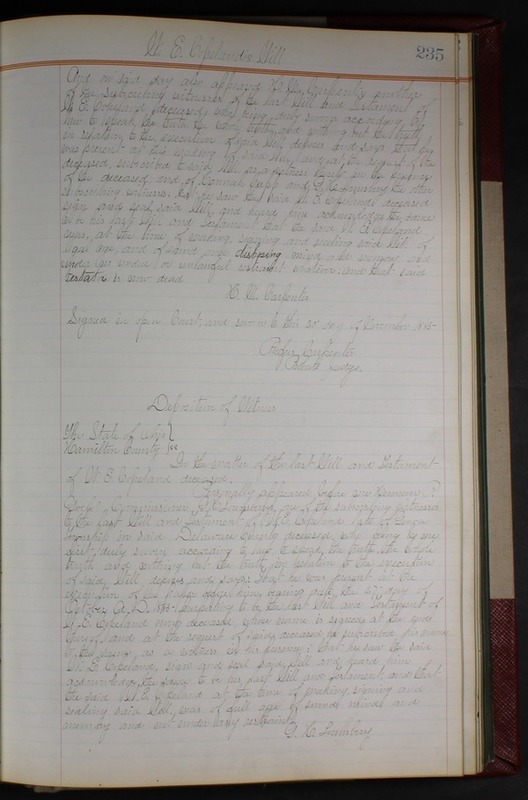 W. E. Copeland's Will 235
And on said day also appeared H. M. Carpenter another
of the subscribing witnesses to the last Will and Testament of
W. E. Copeland, deceased, who being duly sworn according to
law to speak the truth the whole truth, and nothing but the truth
in relation to the execution of said Will, deposes and says that he
was present at the signing of said Will, and at the request of the
deceased, subscribed to said Will as a witness thereto in the presence
of the deceased and of and the other
subscribing witness; that he saw the said W. E. Copeland deceased
sign and seal said Will, and heard him acknowledge the same
to be his last Will and Testament that the said W. E. Copeland
was, at the time of making, signing and sealing said Will of
legal age, and of sound and disposing mind and memory and
under no undue or unlawful restraint whatever; and that said
testator is now dead
H. M. Carpenter
Signed in open Court, and sworn to this 30 day of November 1885-
Rufus Carpenter
Probate Judge.
Deposition of Witness
The State of Ohio
Hamilton County } ss
In the matter of the last Will and Testament
of W. E. Copeland deceased.
Personally appeared before me Herman P.
Commissioner, one of the subscribing witnesses
to the last Will and Testament of W. E. Copeland late of
township in said Delaware County deceased, who being by me
first duly sworn according to law to speak the truth the whole
truth and nothing but the truth, in relation to the execution
of said Will, deposes and says: that he was present at the
execution of the paper before him, bearing date the day of
October A. D. 188- purporting to be the last Will and Testament of
W. E. Copeland now deceased whose name is signed at the end
thereof, and at the request of said deceased he subscribed his name
to the same, as a witness in his presence; that he saw the said
W. E. Copeland, sign and seal said Will and heard him
acknowledge the same to be his last Will and Testament, and that
the said W. E. Copeland at the time of making, signing and
sealing said Will, was of full age of sound mind and
memory and not under any restraint